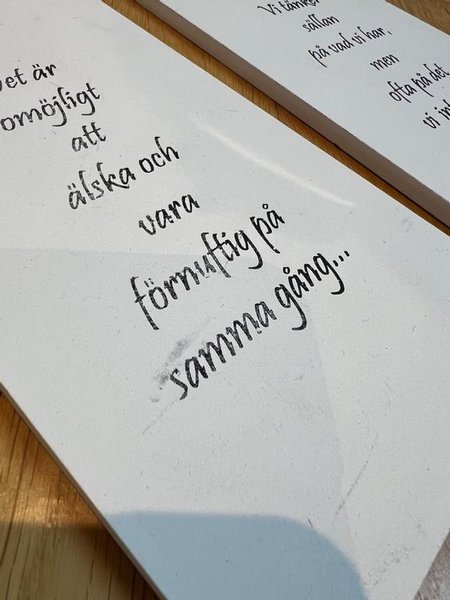 et är
omöjligt
att
älska och
vara
förnuftig på
samma gång...
Vi tänker
sällan
på vad vi har,
men
ofta på det
vi